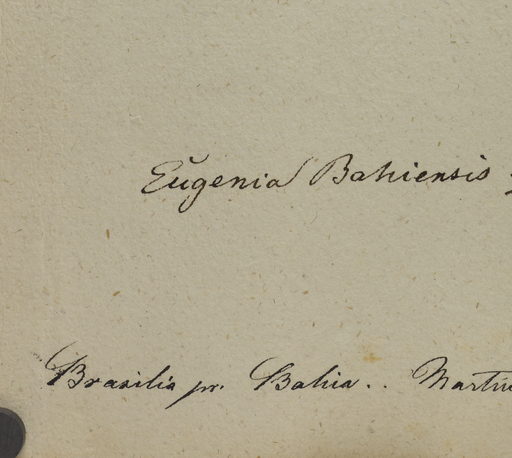 Eugenia Bahiensis
Brasilia pr. Bahia. . Martiu